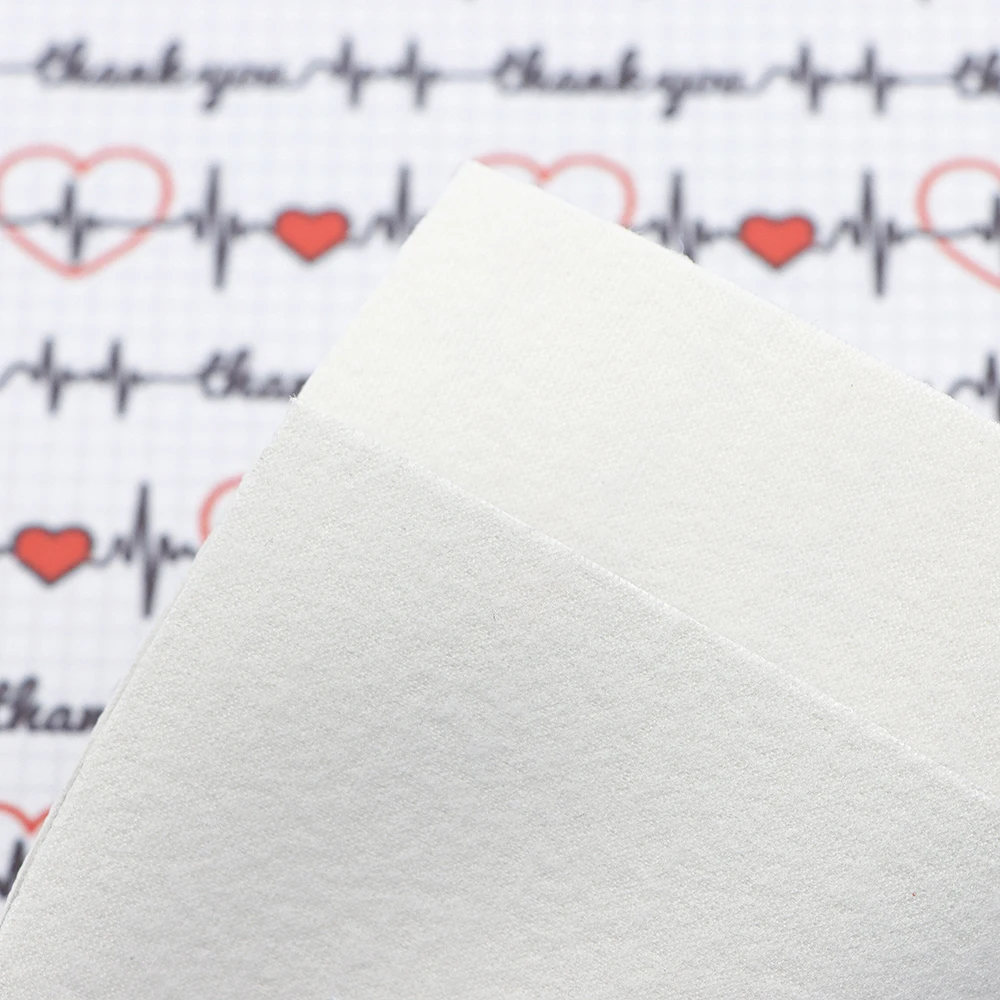 thank you thank you th
than
than